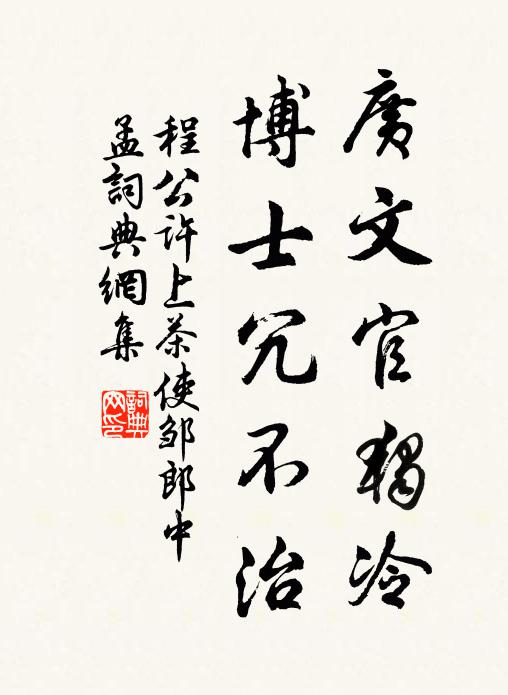 廣文官獨冷
博士冗不治
程公許上茶使邹郎中
孟詞典網集
詞典网印